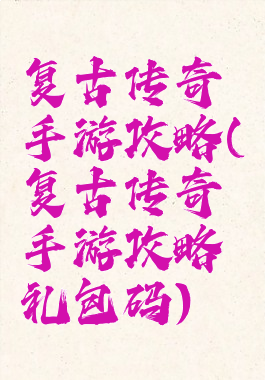 复古传奇
手游攻略(
复古传奇
手游攻略
礼包码)